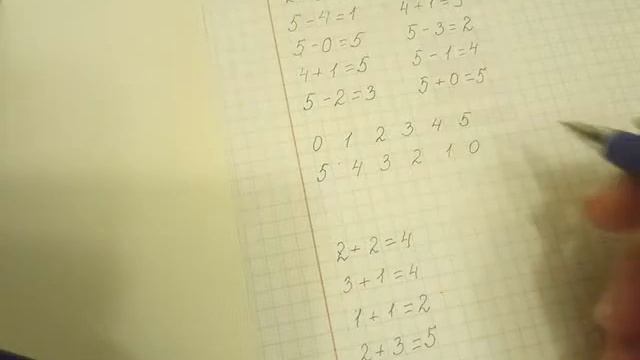 5-4=1 4+1=5
5-0=5 5-3=2
4+1=5 5-1=4
5-2=3 5+0=5
0 1 2 3 4 5
5 4 3 2 1 0
2+2=4
3+1=4
1+1=2
2+3=5